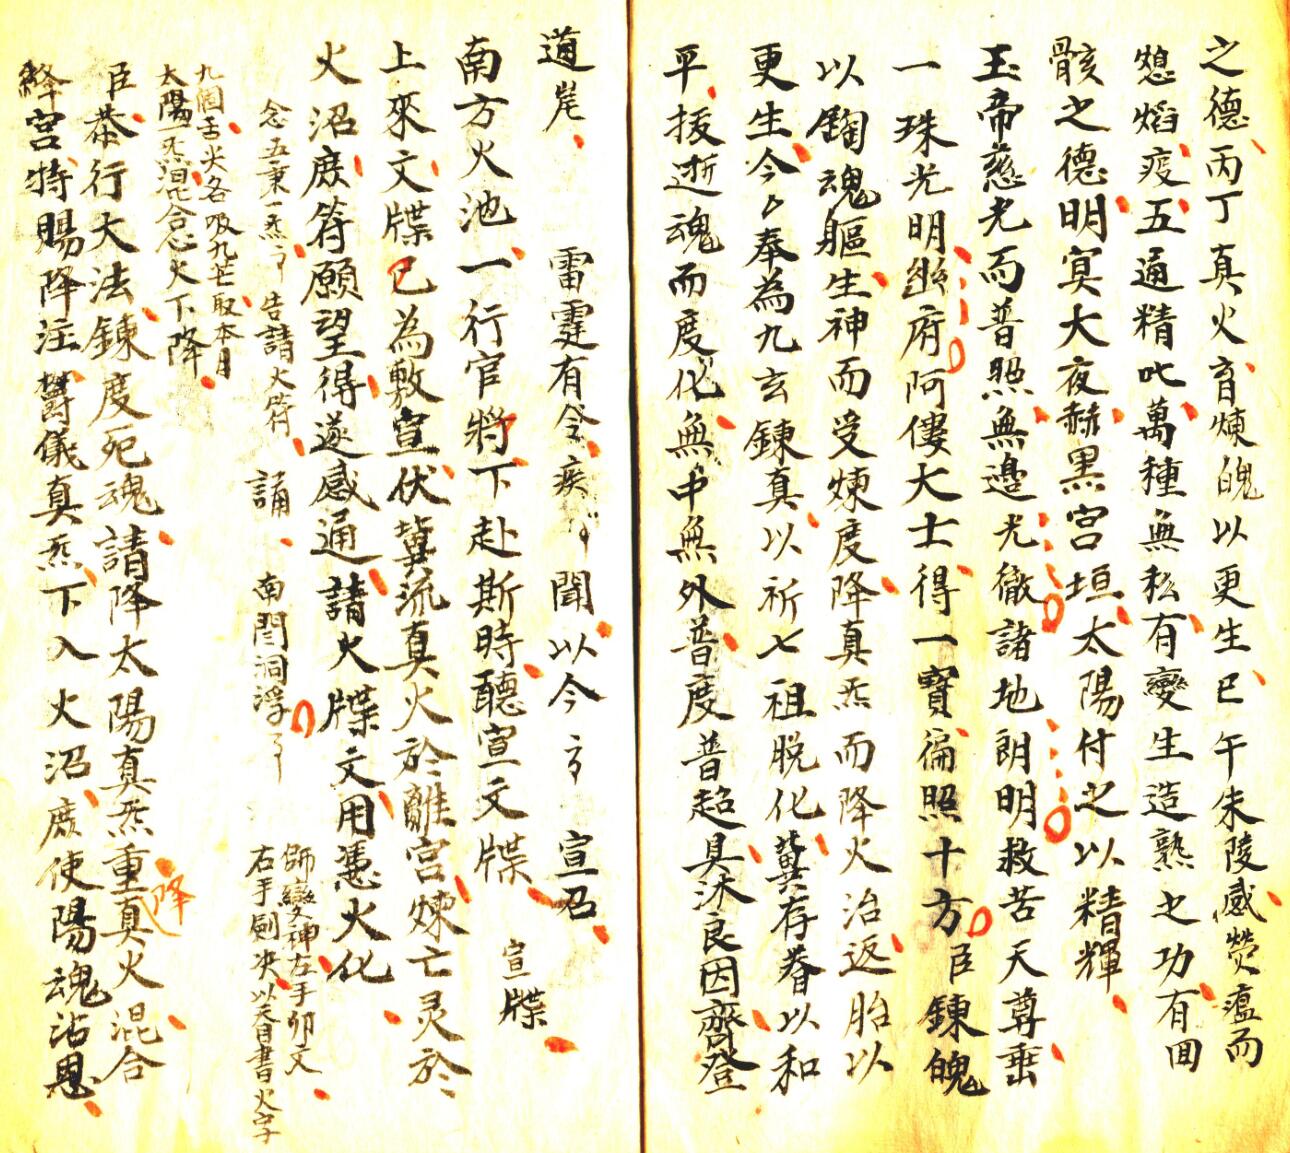 之德丙丁真火育煉魄以更生巳午朱陵感熒瘟而
熄焰疫五通精叱萬種無私有變生造熟之功有囬
骸之德明冥大夜赫黑宮垣太陽付之以精輝
玉帝慈光而普照無邊光徹諸地朗明救苦天尊垂
一珠光明幽府阿僂大士得一寶徧照十方臣鍊魄
以鍧魂軀生神而受煉度降真炁而降火冶返胎以
更生今奉為九玄鍊真以祈七祖脫化冀存眷以和
平拔逝魂而度化無中無外普度普超具沐良因齊登
道岸
雷霆有令疾聞以今宣召
南方火池一行官將下赴斯時聽宣文牒 宣牒
上來文牒已為敷宣伏冀流真火於離宮煉亡灵於
火沼庶符願望得遂感通請火牒文用憑火化
念五秉一炁告請火符 誦 南閻洞浮 師變神左手卯文
右手劍决以香書火字
九個舌尖各吸九芒取本月
太陽一炁混合念火下降
臣恭行大法鍊度死魂請降太陽真炁重真火混合
降
絳宮特賜降注欝儀真炁下入火沼庶使陽魂沾恩